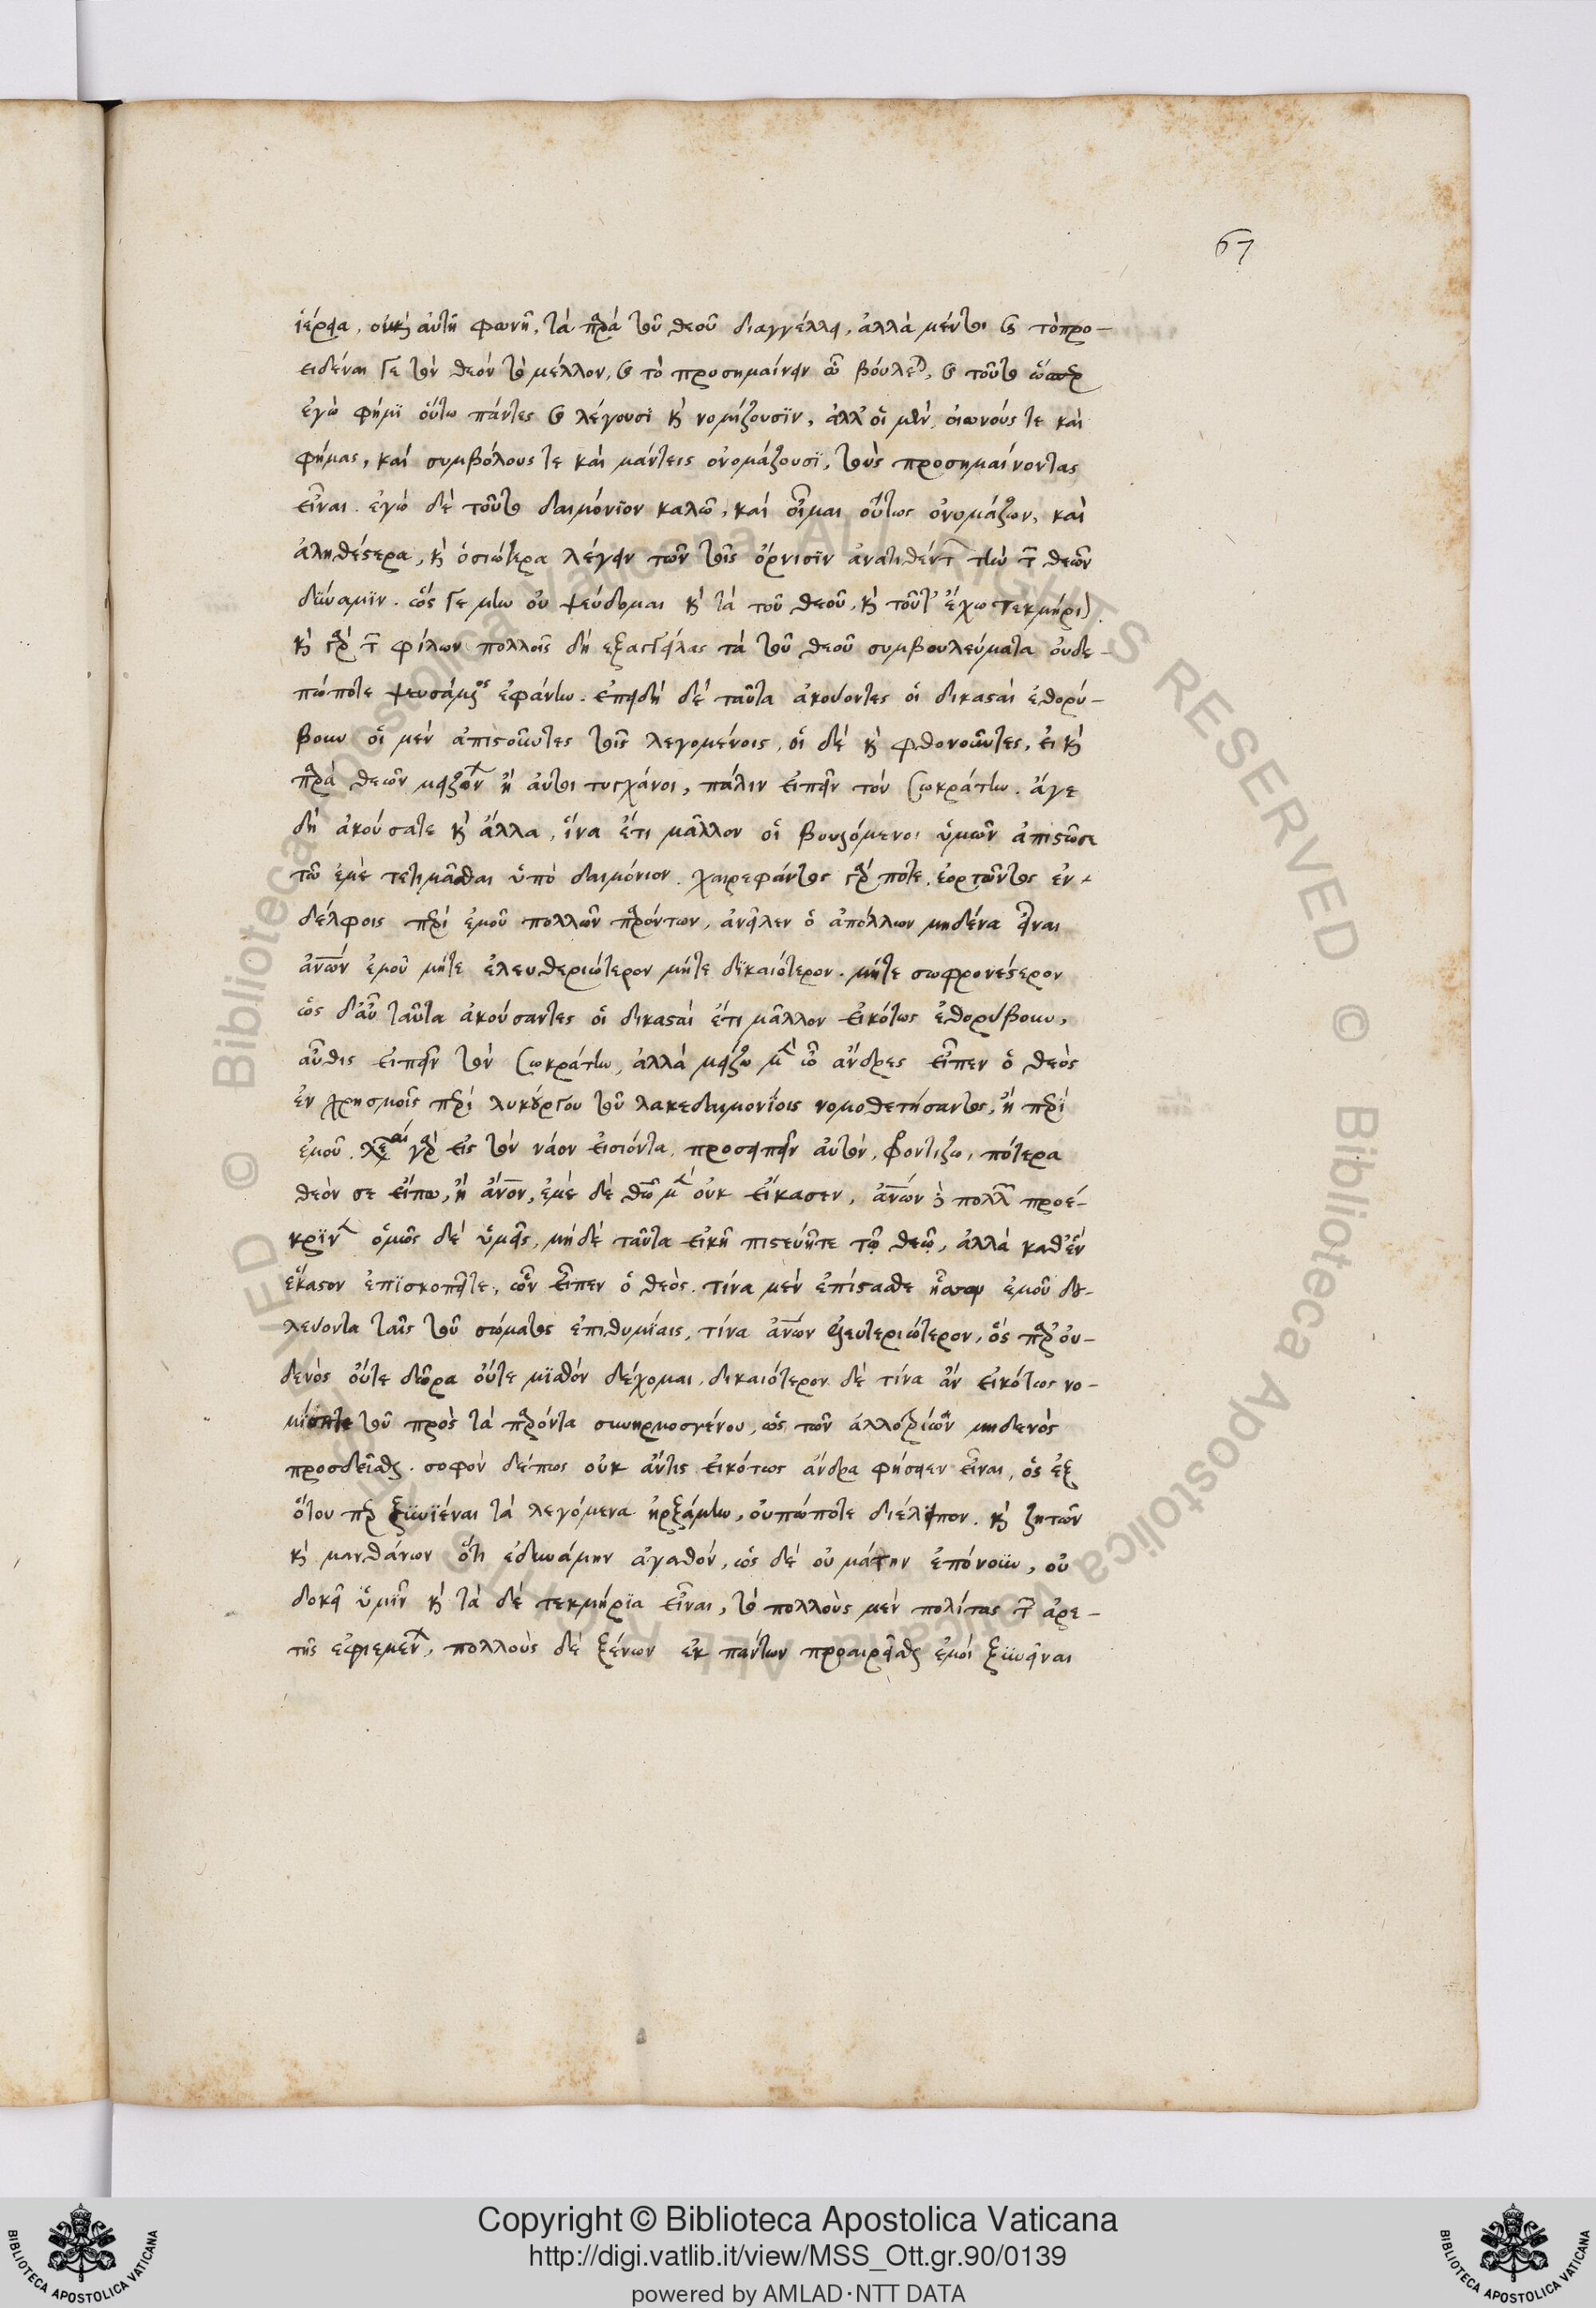 67
ἱέρεια, οὐκὶ αὐτὴ φωνῇ, τὰ παρὰ τοῦ θεοῦ διαγγέλλει, ἀλλὰ μέντοι καὶ τὸ προ-
ειδέναι γε τὸν θεὸν τὸ μέλλον, καὶ τὸ προσημαίνειν ᾧ βούλεται, καὶ τοῦτο ὥσπερ
ἐγώ φημὶ οὕτω πάντες καὶ λέγουσι καὶ νομίζουσιν, ἀλλ' οἱ μὲν οἰωνούς τε καὶ
φήμας, καὶ συμβόλους τε καὶ μάντεις ὀνομάζουσι, τοὺς προσημαίνοντας
εἶναι. ἐγὼ δὲ τοῦτο δαιμόνιον καλῶ, καὶ οἶμαι οὕτως ὀνομάζων, καὶ
ἀληθέστερα, καὶ ὁσιώτερα λέγειν τῶν τοῖς ὄρνισιν ἀνατιθέντων τὴν τῶν θεῶν
δύναμιν. ὥς γε μὴν οὐ ψεύδομαι κὶ τὰ τοῦ θεοῦ, καὶ τοῦτ' ἔχω τεκμήριον.
καὶ γὰρ τῶν φίλων πολλοῖς δὴ ἐξαγγείλας τὰ τοῦ θεοῦ συμβουλεύματα οὐδε-
πώποτε ψευσάμενος ἐφάνην. ἐπειδὴ δὲ ταῦτα ἀκούοντες οἱ δικασταὶ ἐθορύ-
βουν οἱ μὲν ἀπιστοῦντες τοῖς λεγομένοις, οἱ δὲ καὶ φθονοῦντες, εἰ καὶ
παρὰ θεῶν μειζόνων ἢ αὐτοὶ τυγχάνοι, πάλιν εἰπεῖν τὸν Σωκράτην. ἄγε
δὴ ἀκούσατε καὶ ἄλλα, ἵνα ἔτι μᾶλλον οἱ βουλόμενοι ὑμῶν ἀπιστῶσι
τῶ ἐμὲ τετιμᾶσθαι ὑπὸ δαιμόνιον. χαιρεφάντος γάρ ποτε, ἑορτῶντος ἐν
δέλφοις περὶ ἐμοῦ πολλῶν παρόντων, ἀνεῖλεν ὁ ἀπόλλων μηδένα εἶναι
ἀνων ἐμοῦ μήτε ἐλευθεριώτερον μήτε δικαιότερον. μήτε σωφρονέστερον
ὡς δ' αὖ ταῦτα ἀκούσαντες οἱ δικασταὶ ἔτι μᾶλλον εἰκότως ἐθορύβουν,
αὖθις εἰπεῖν τὸν Σωκράτην, ἀλλὰ μείζω μὲν ὦ ἄνδρες εἶπεν ὁ θεὸς
ἐν χρησμοῖς περὶ λυκούργου τοῦ λακεδαιμονίοις νομοθετήσαντος, ἢ περὶ
ἐμοῦ. λέγεται γὰρ εἰς τὸν νάον εἰσιόντα, προσειπεῖν αὐτὸν, φροντίζω, πότερα
θεόν σε εἴπω, ἢ ἄνον, ἐμὲ δὲ θεῶ μὲν οὐκ εἴκασεν, ἀνων δὲ πολλῶν προέ-
κρινεν ὁμῶς δὲ ὑμεῖς, μηδὲ ταῦτα εἰκῇ πιστεύητε τῷ θεῷ, ἀλλὰ καθ' ἓν
ἕκαστον ἐπισκοπεῖτε, ὧν εἶπεν ὁ θεός. τίνα μὲν ἐπίστασθε ἧττον ἐμοῦ δου-
λεύοντα ταῖς τοῦ σώματος ἐπιθυμίαις, τίνα ἀνων ἐλευτεριώτερον, ὃς παρ' οὐ-
δενὸς οὔτε δῶρα οὔτε μισθὸν δέχομαι, δικαιότερον δὲ τίνα ἂν εἰκότως νο-
μίσητε τοῦ πρὸς τὰ παρόντα συνηρμοσμένου, ὡς τῶν ἀλλοτρίων μηδενὸς
προσδεῖσθαι. σοφὸν δέ πως οὐκ ἄν τις εἰκότως ἄνδρα φήσειεν εἶναι, ὃς ἐξ
ὅτου περ ξυνιέναι τὰ λεγόμενα ἠρξάμην, οὐπώποτε διέλειπον. καὶ ζητῶν
καὶ μανθάνων ὅτι ἐδυνάμην ἀγαθόν, ὡς δὲ οὐ μάτην ἐπόνουν, οὐ
δοκεῖ ὑμῖν καὶ τὰ δὲ τεκμήρια εἶναι, τὸ πολλοὺς μὲν πολίτας τῶν ἀρε-
τῆς ἐφιεμένων, πολλοὺς δὲ ξένων ἐκ πάντων προαιρεῖσθαι ἐμοὶ ξυνεῖναι
Copyright © Biblioteca Apostolica Vaticana
http://digi.vatlib.it/view/MSS_Ott.gr.90/0139
powered by AMLAD·NTT DATA